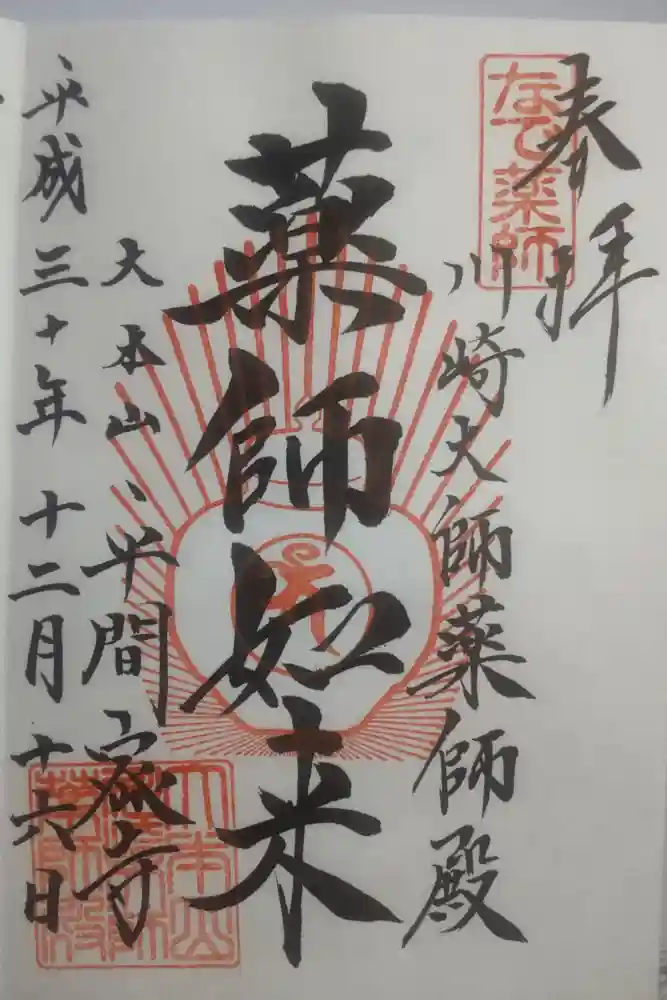 奉拝
なで薬師
川崎大師薬師殿
薬師如来
大本山
平間寺
平成三十年十二月十六日